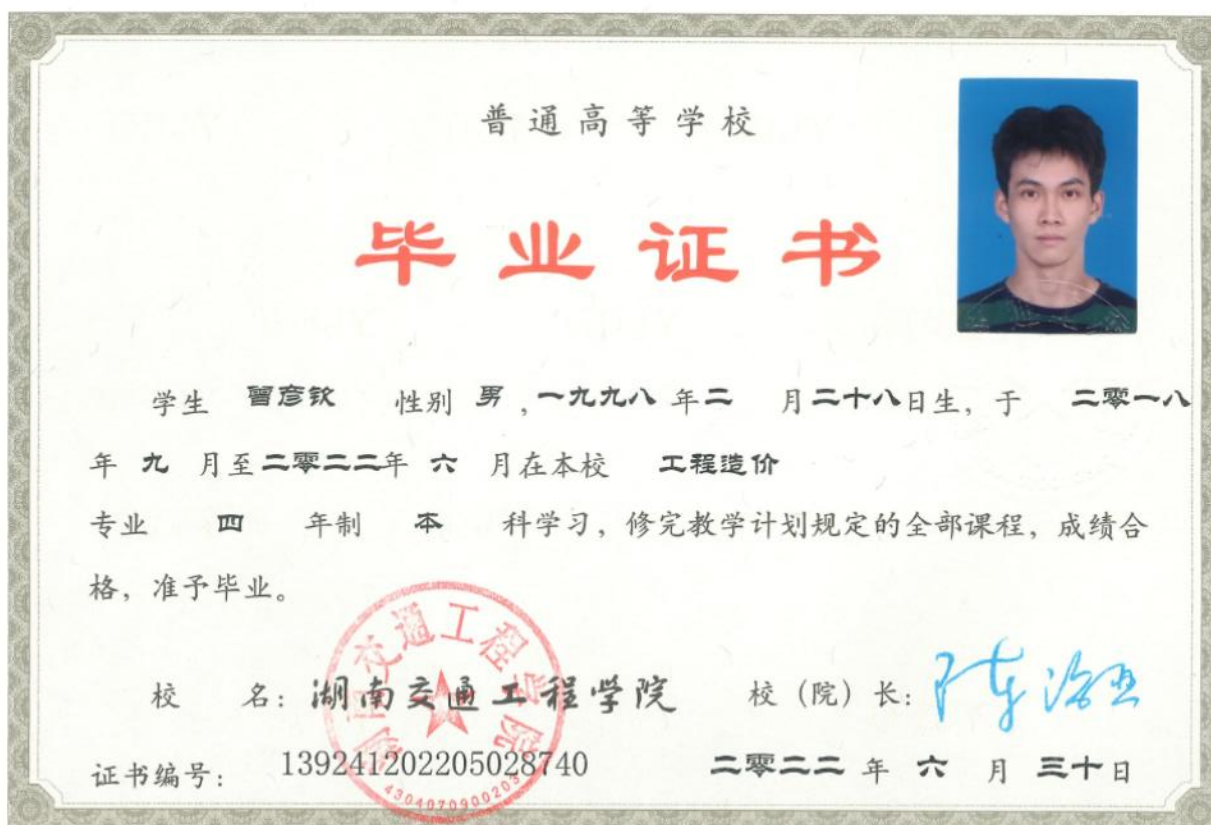 普通高等学校
毕业证书
学生 曾彦钦 性别 男,一九九八年二 月二十八日生,于 二零一八
年 九 月至二零二二年 六 月在本校 工程造价
专业 四 年制 本 科学习,修完教学计划规定的全部课程,成绩合
格,准予毕业。
校 名:湖南交通工程学院 校(院)长:
证书编号:139241202205028740 二零二二 年 六 月 三十日
湖南交通工程学院